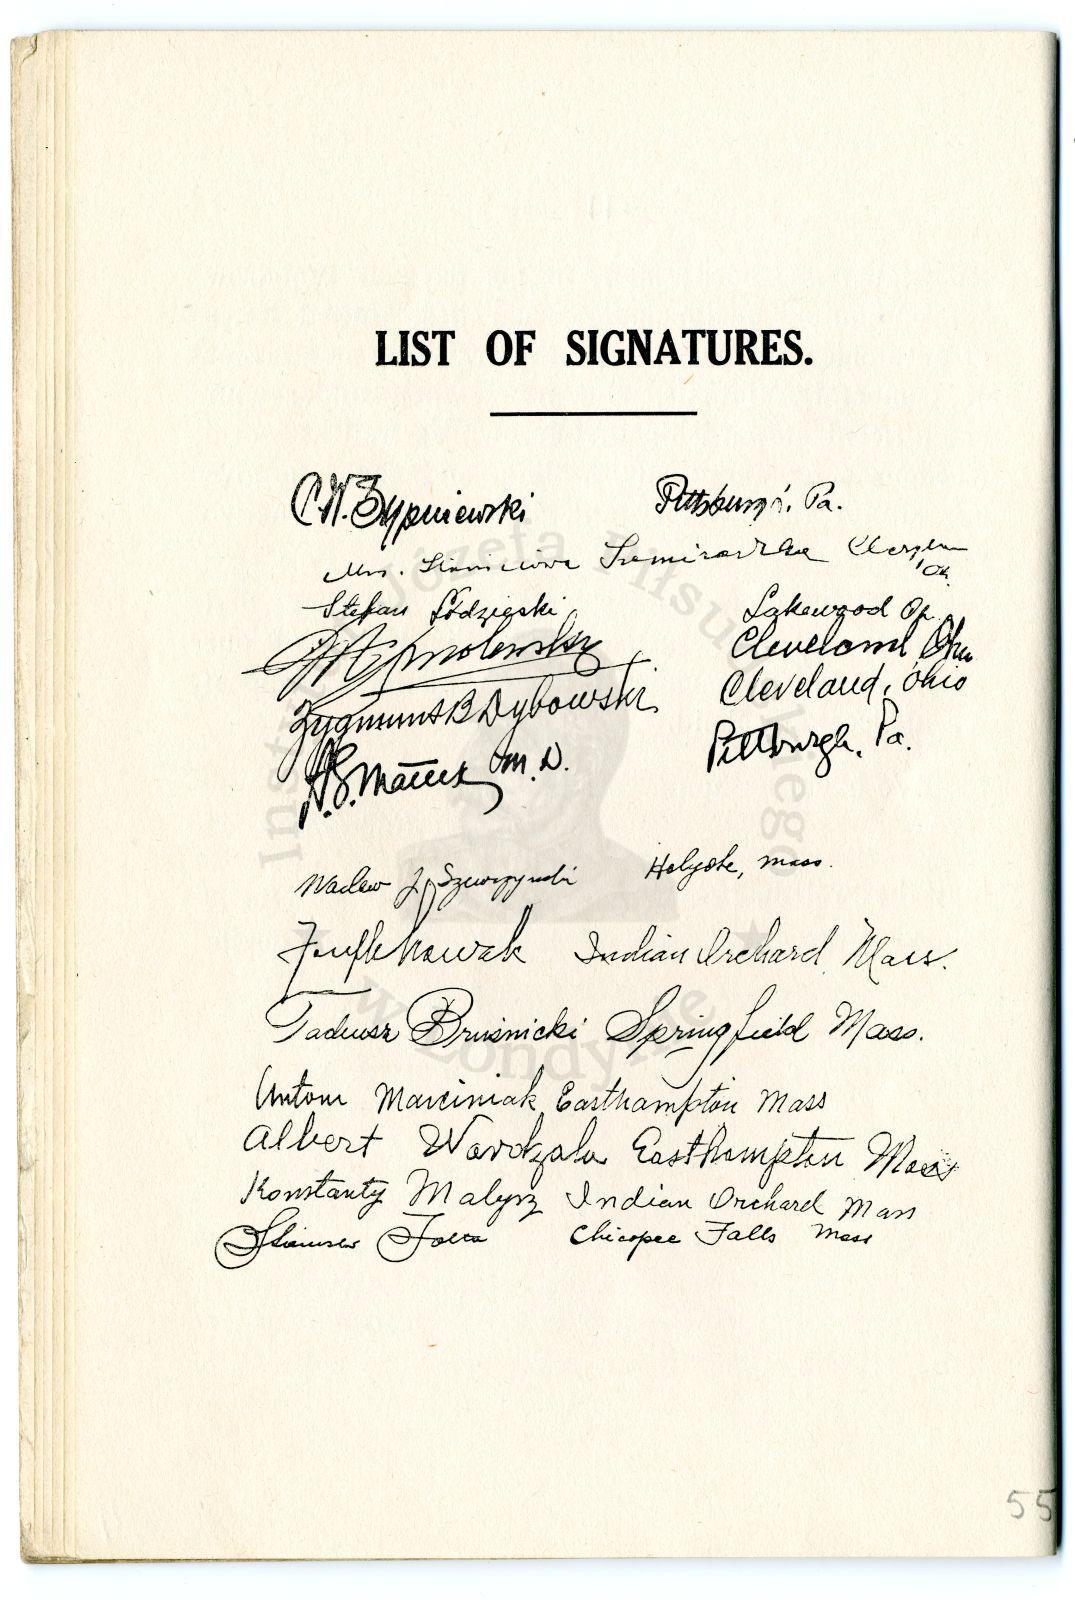 LIST OF SIGNATURES.
C.W. Sypniewski Pittsburgh, Pa.
Mrs.
Stefan Łódzieski Lakewood Oh.
Cleveland, Ohio
Zygmunt B Dybowski Cleveland, Ohio
M.D. Pittsburgh, Pa.
Wacław J. Holyoke, Mass.
Nowak Indian Orchard Mass.
Tadeusz Bruśnicki Springfield Mass.
Antoni Marciniak Easthampton Mass
Albert Wardzala Easthampton Mass
Konstanty Malysz Indian Orchard Mass
Chicopee Falls Mass
Instytut Józefa Piłsudskiego
w Londynie
55